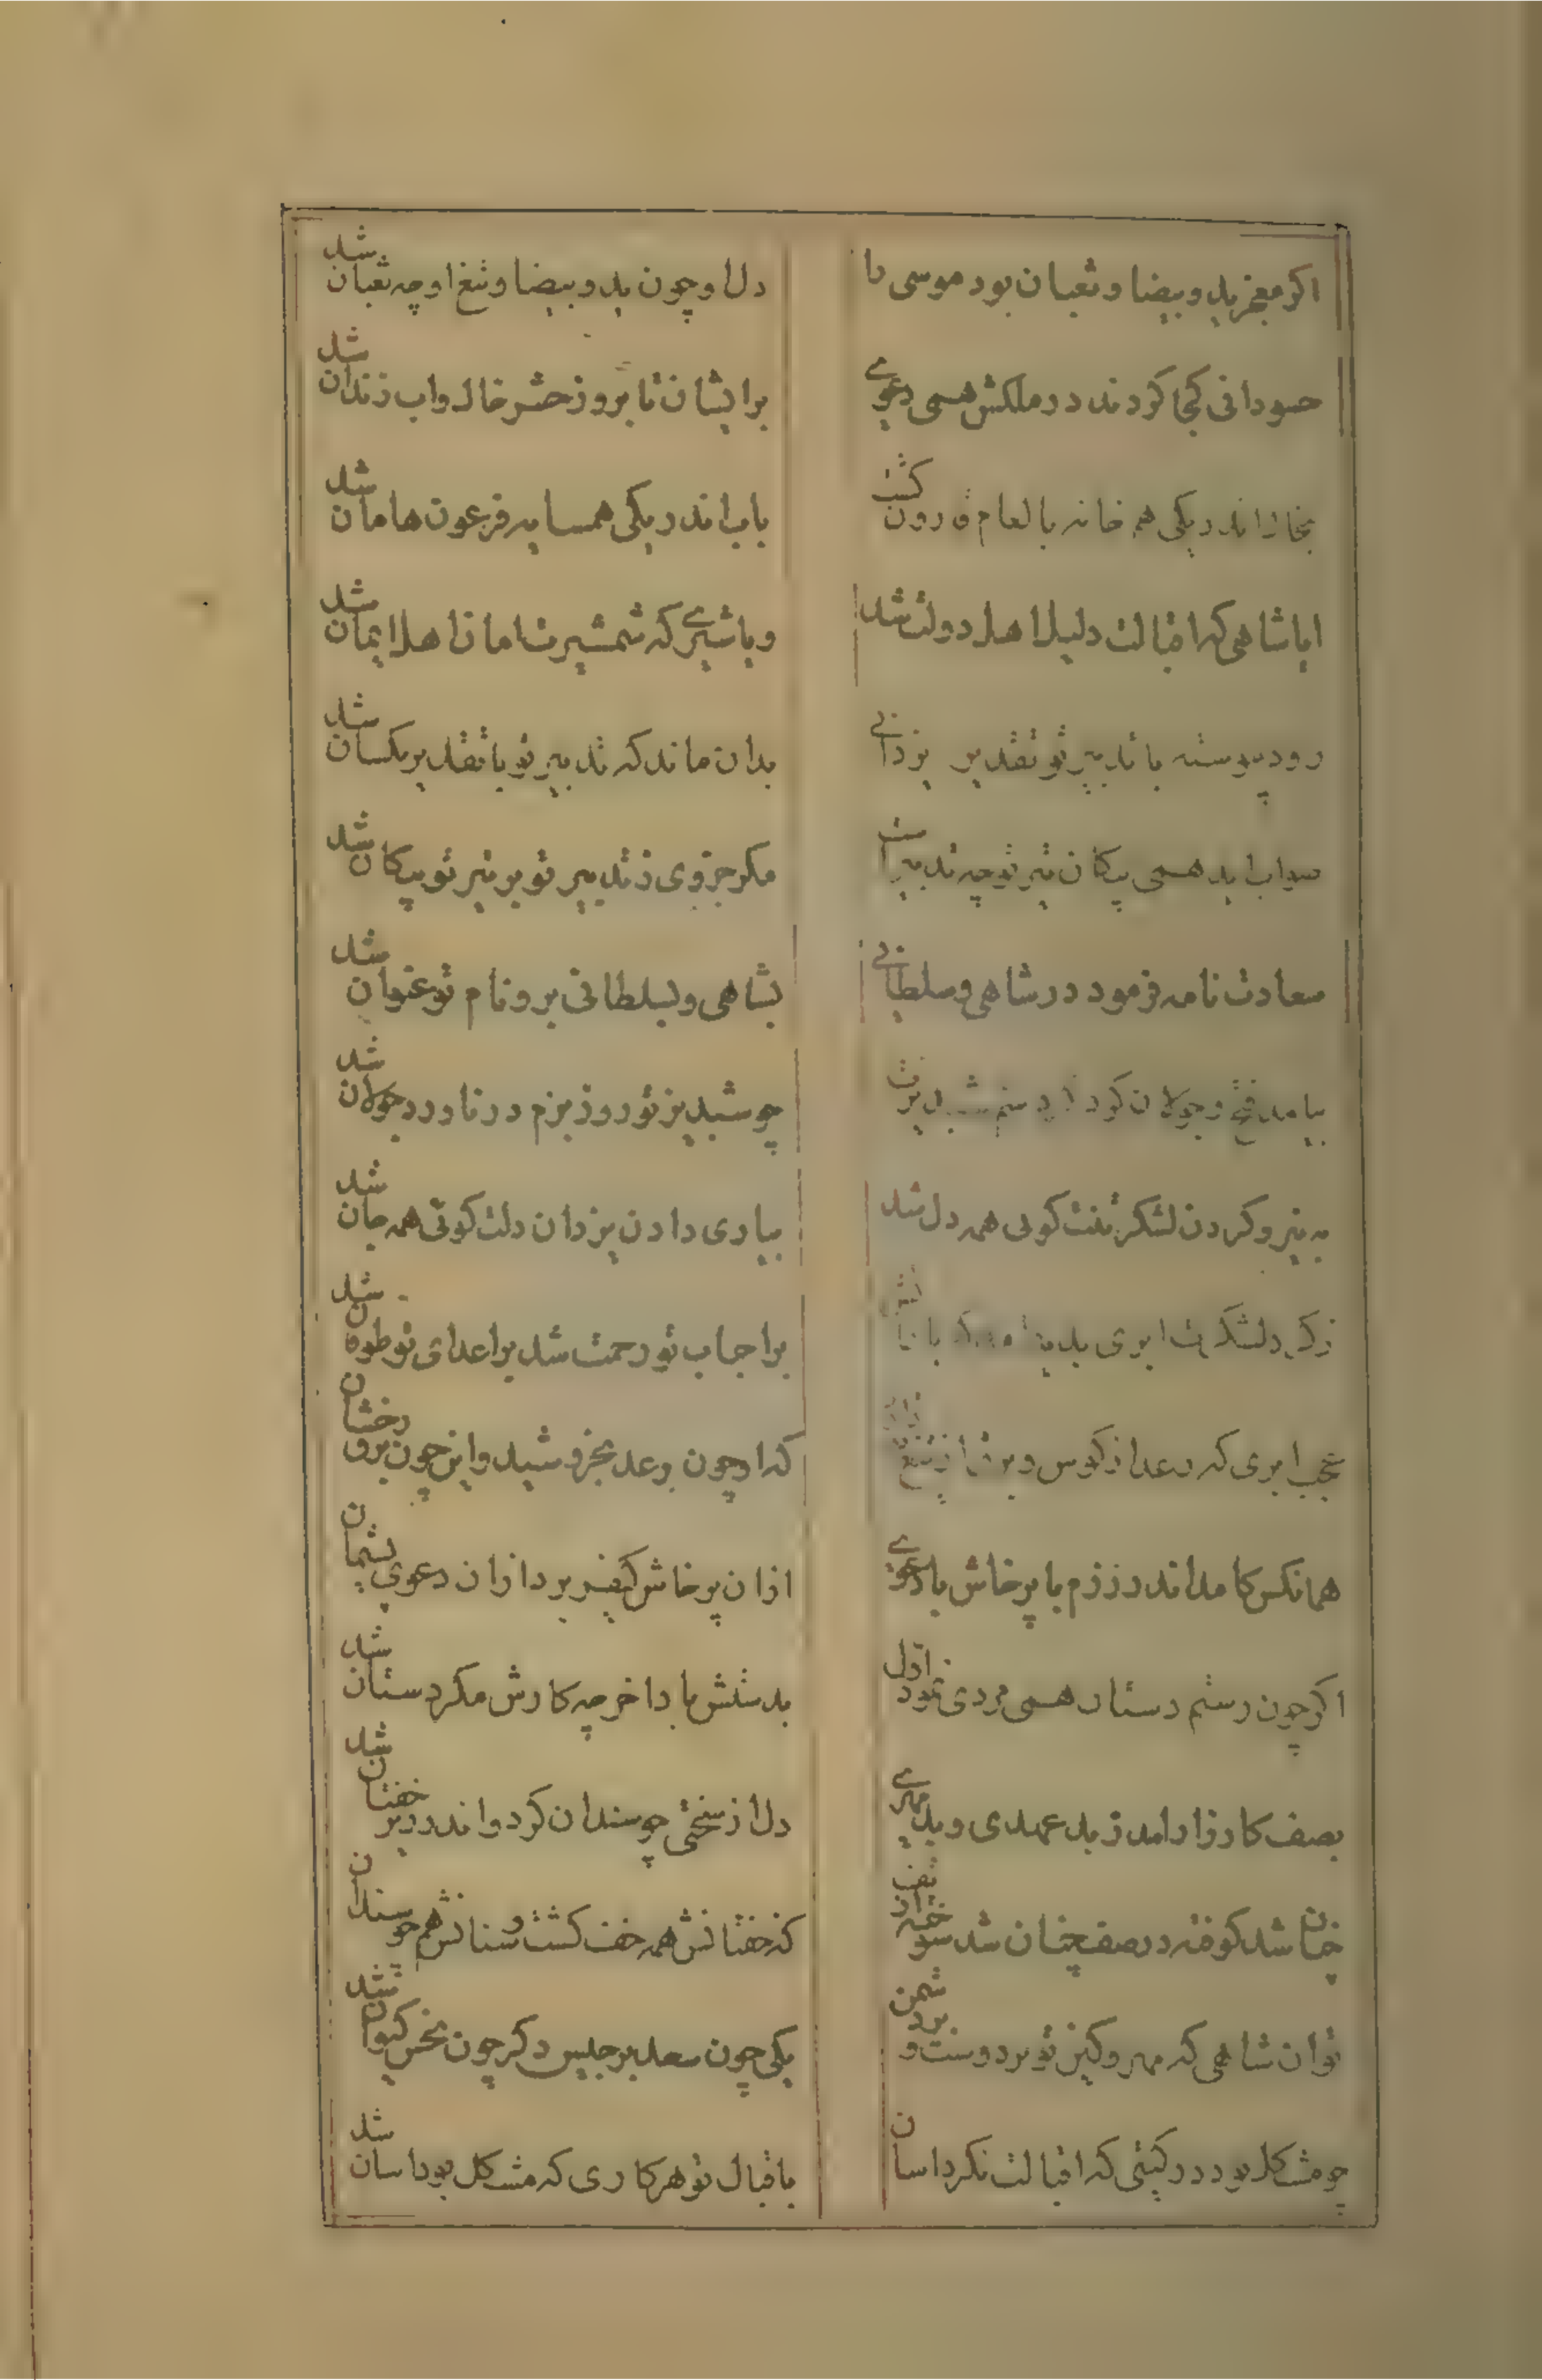 اکر معجز ید و بیضا و ثعبان بود موسی را
دل او چون ید و بیضا و تیغ او چه ثعبان شد
حسودانی کجا کردند در ملکش همی دعوی
برایشان تا بروز حشر خاک و اب زندان شد
بخاک اندر یکی هم خانه بالعام قارون کشت
باب اندر یکی همسایه فرعون هامان شد
ایا شاهی که اقبالت دلیل اهل دولت شد
و یا شیری که شمشیرت امان اهل ایمان شد
رود پیوسته با تدبیر تو تقدیر یزدانی
بدان ماند که تدبیر تو با تقدیر یکسان شد
صواب اید همی پیکان تیر تو چه تدبیرست
مکر جزوی ز تدبیر تو بر تیر تو پیکان شد
سعادت نامه فرمود در شاهی و سلطانی
بشاهی و بسلطانی برو نام تو عنوان شد
بیامد فتح و جولان کرد شبدیزت
چو شبدیز تو روز بزم در ناورد جولان شد
به نیرو کردن لشکر تنت کویی همه دل شد
بیاری دادن یزدان دلت کوئی همه جان شد
ز کرد لشکرت ابری بدید
بر احباب تو رحمت شد بر اعدای تو طوفان شد
عجب ابری که رعد از کوس و برق از تیغ
که او چون رعد بخروشید و این چون برق رخشان
همانکس کامد اندر رزم با پرخاش با دعوی
ازان پرخاش کیفر برد ازان دعوی پشیمان
اکر چون رستم دستان همی مردی نمود اول
بدستش باد اخر چه کارش مکر دستان شد
بصف کارزار امد ز بد عهدی و بد مهری
دل از سختی چو سندان کرد و اندر زیر خفتان شد
چنان شد کوفته در صف چنان شد سوخته در تف
که خفتانش همه خف کشت و سنانش هم چو سندان
توان شاهی که مهر و کین تو بر دوست و بر دشمن
یکی چون سعد برجیس دکر چون نحس کیوان شد
چو مشکل بود در کیتی که اقبالت نکرد اسان
باقبال تو هر کاری که مشکل بود اسان شد